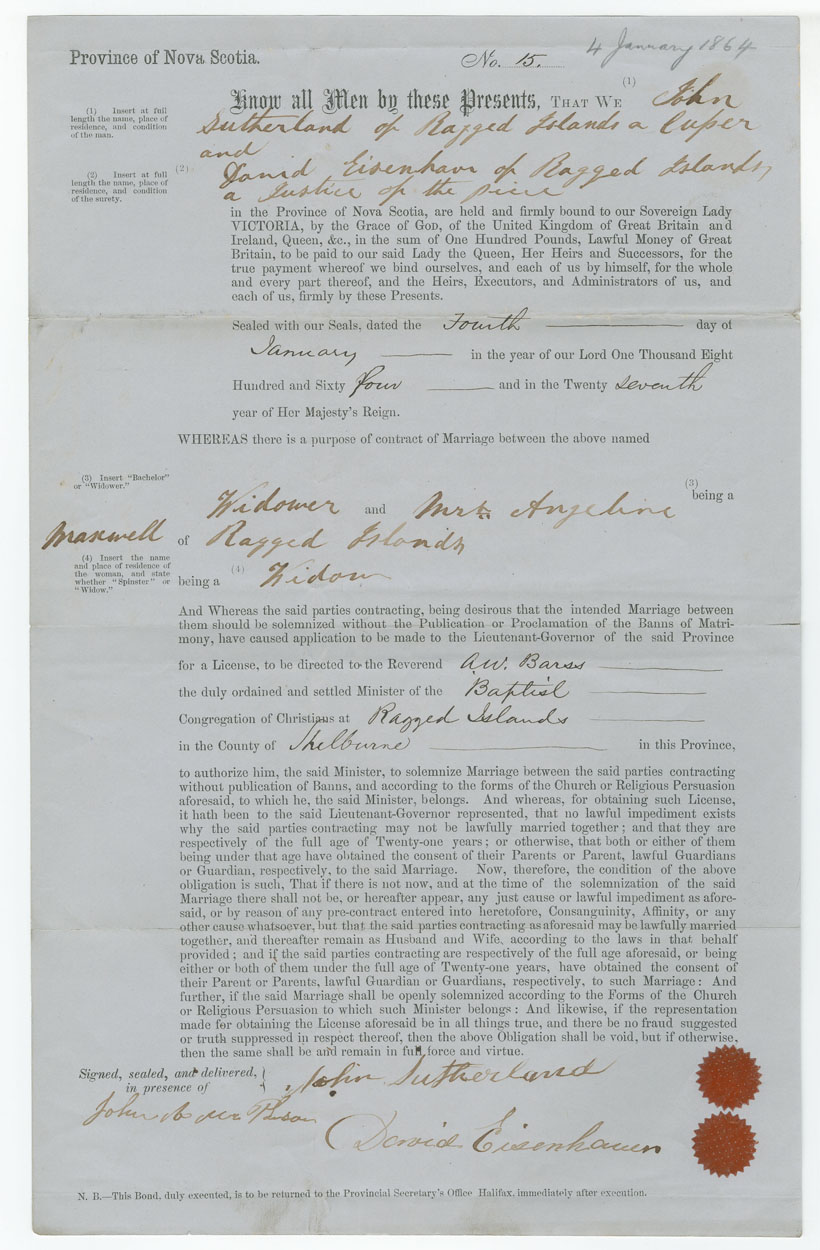 4 January 1864
Province of Nova Scotia.
No. 15.
(1)
Know all Men by these Presents, THAT WE John
(1) Insert at full
length the name, place of
residence, and condition
of the man.
Sutherland of Ragged Islands a Cuper
and
(2)
David Eisenhaur of Ragged Islands,
(2) Insert at full
length the name, place of
residence, and condition
of the surety.
a Justice of the piece
in the Province of Nova Scotia, are held and firmly bound to our Sovereign Lady
VICTORIA, by the Grace of God, of the United Kingdom of Great Britain and
Ireland, Queen, &c., in the sum of One Hundred Pounds, Lawful Money of Great
Britain, to be paid to our said Lady the Queen, Her Heirs and Successors, for the
true payment whereof we bind ourselves, and each of us by himself, for the whole
and every part thereof, and the Heirs, Executors, and Administrators of us, and
each of us, firmly by these Presents.
Sealed with our Seals, dated the Fourth day of
January in the year of our Lord One Thousand Eight
Hundred and Sixty four and in the Twenty seventh
year of Her Majesty's Reign.
WHEREAS there is a purpose of contract of Marriage between the above named
(3) Insert "Bachelor"
or "Widower."
(3)
being a
Widower and Mrs. Angeline
Maxwell of Ragged Islands
(4) Insert the name
and place of residence of
the woman, and state
whether "Spinster" or
"Widow."
being a (4) Widow
And Whereas the said parties contracting, being desirous that the intended Marriage between
them should be solemnized without the Publication or Proclamation of the Banns of Matri-
mony, have caused application to be made to the Lieutenant-Governor of the said Province
for a License, to be directed to the Reverend A.W. Barss
the duly ordained and settled Minister of the Baptist
Congregation of Christians at Ragged Islands
in the County of Shelburne in this Province,
to authorize him, the said Minister, to solemnize Marriage between the said parties contracting
without publication of Banns, and according to the forms of the Church or Religious Persuasion
aforesaid, to which he, the said Minister, belongs. And whereas, for obtaining such License,
it hath been to the said Lieutenant-Governor represented, that no lawful impediment exists
why the said parties contracting may not be lawfully married together; and that they are
respectively of the full age of Twenty-one years; or otherwise, that both or either of them
being under that age have obtained the consent of their Parents or Parent, lawful Guardians
or Guardian, respectively, to the said Marriage. Now, therefore, the condition of the above
obligation is such, That if there is not now, and at the time of the solemnization of the said
Marriage there shall not be, or hereafter appear, any just cause or lawful impediment as afore-
said, or by reason of any pre-contract entered into heretofore, Consanguinity, Affinity, or any
other cause whatsoever, but that the said parties contracting as aforesaid may be lawfully married
together, and thereafter remain as Husband and Wife, according to the laws in that behalf
provided; and if the said parties contracting are respectively of the full age aforesaid, or being
either or both of them under the full age of Twenty-one years, have obtained the consent of
their Parent or Parents, lawful Guardian or Guardians, respectively, to such Marriage: And
further, if the said Marriage shall be openly solemnized according to the Forms of the Church
or Religious Persuasion to which such Minister belongs: And likewise, if the representation
made for obtaining the License aforesaid be in all things true, and there be no fraud suggested
or truth suppressed in respect thereof, then the above Obligation shall be void, but if otherwise,
then the same shall be and remain in full force and virtue.
Signed, sealed, and delivered,
in presence of
John Sutherland
John
David Eisenhauer
N. B.—This Bond, duly executed, is to be returned to the Provincial Secretary's Office Halifax, immediately after execution.